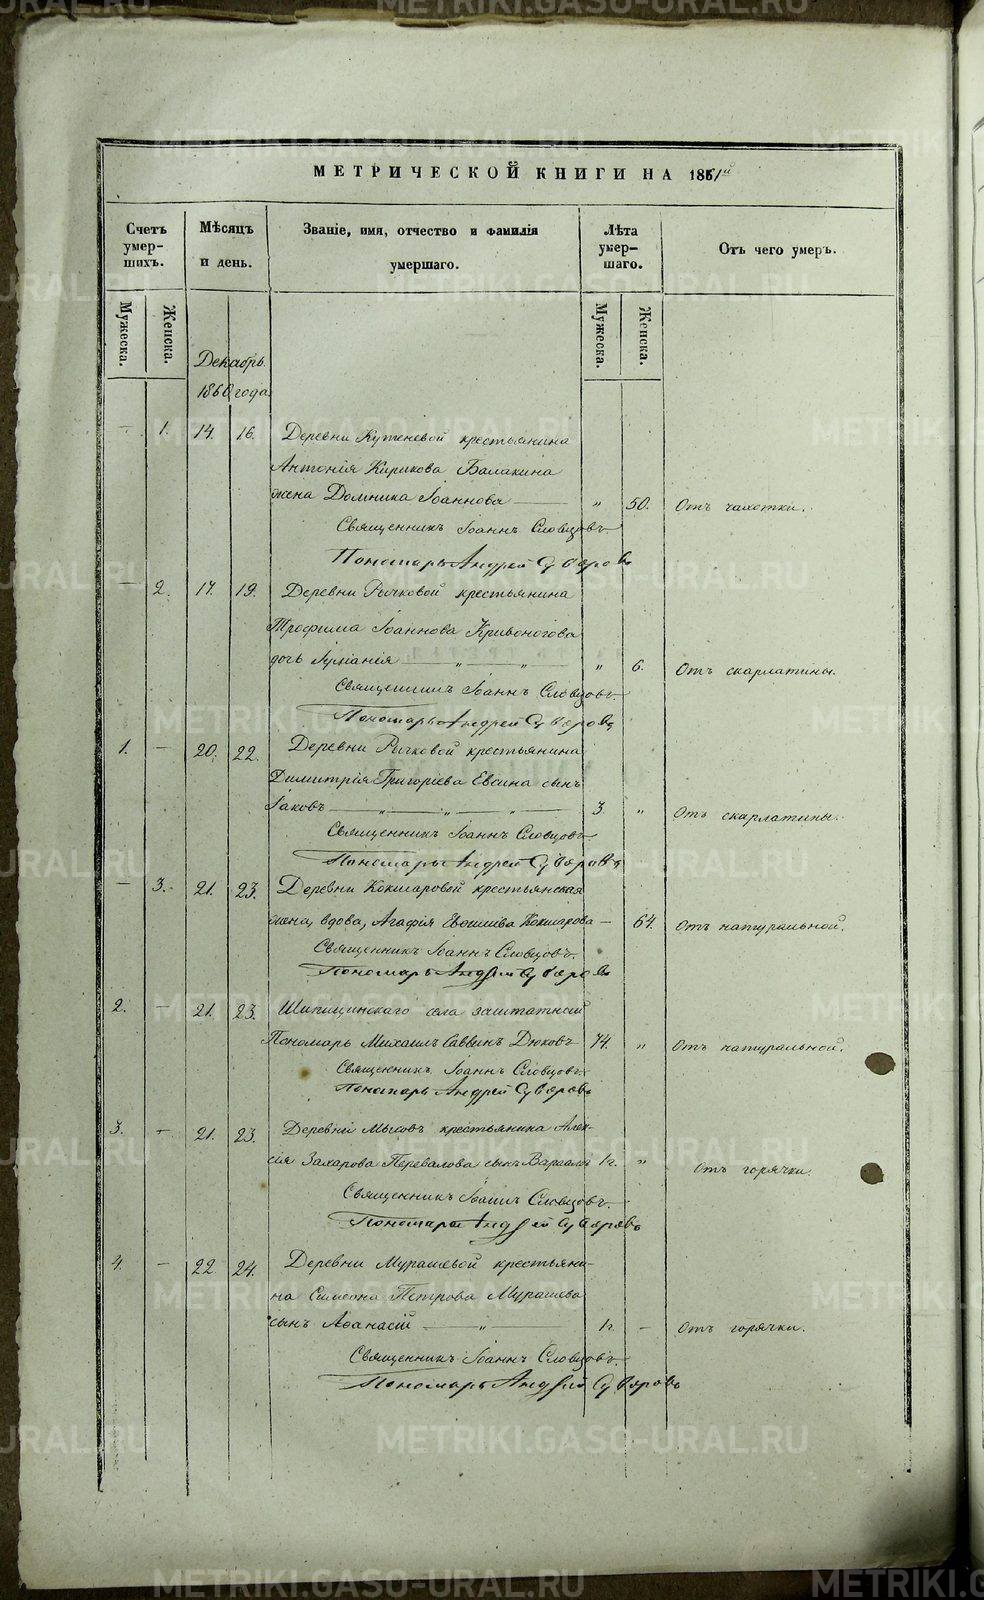 МЕТРИЧЕСКОЙ КНИГИ НА 1861й
Счетъ умер-шихъ.
Мѣсяцъ и день.
Званіе, имя, отчество и фамилія умершаго.
Лѣта умер-шаго.
Отъ чего умеръ.
Мужеска. Женска. Мужеска. Женска.
Декабрь
1860 года
— 1. 14. 16. Деревни Кутеневой крестьянина
Антонія Кирикова Балакина
жена Домника Іоаннова — „ 50. Отъ чахотки.
Священникъ Іоаннъ Словцовъ.
Пономарь Андрей Суворовъ
— 2. 17. 19. Деревни Рычковой крестьянина
Трофима Іоаннова Кривоногова
дочь — „ — „ — „ 6. Отъ скарлатины.
Священникъ Іоаннъ Словцовъ.
Пономарь Андрей Суворовъ
1. — 20. 22. Деревни Рычковой крестьянина
Димитрія Григоріева Евсина сынъ
Іаковъ — „ — „ — „ — 3. „ Отъ скарлатины.
Священникъ Іоаннъ Словцовъ
Пономарь Андрей Суворовъ
— 3. 21. 23. Деревни Кокшаровой крестьянская
жена, вдова, Агафія Кокшарова — 64. Отъ натуральной.
Священникъ Іоаннъ Словцовъ.
Пономарь Андрей Суворовъ
2. — 21. 23. Шипицинскаго села заштатный
Пономарь Михаилъ Саввинъ Дюковъ 74. „ Отъ натуральной.
Священникъ Іоаннъ Словцовъ.
Пономарь Андрей Суворовъ
3. — 21. 23. Деревни Мысовъ крестьянина Алек-
сія Захарова Перевалова сынъ 1 г. „ Отъ горячки.
Священникъ Іоаннъ Словцовъ.
Пономарь Андрей Суворовъ
4. — 22. 24. Деревни Мурашевой крестьяни-
на Симеона Петрова Мурашева
сынъ Аѳанасій — „ — 1 г. — Отъ горячки.
Священникъ Іоаннъ Словцовъ.
Пономарь Андрей Суворовъ
METRIKI.GASO-URAL.RU